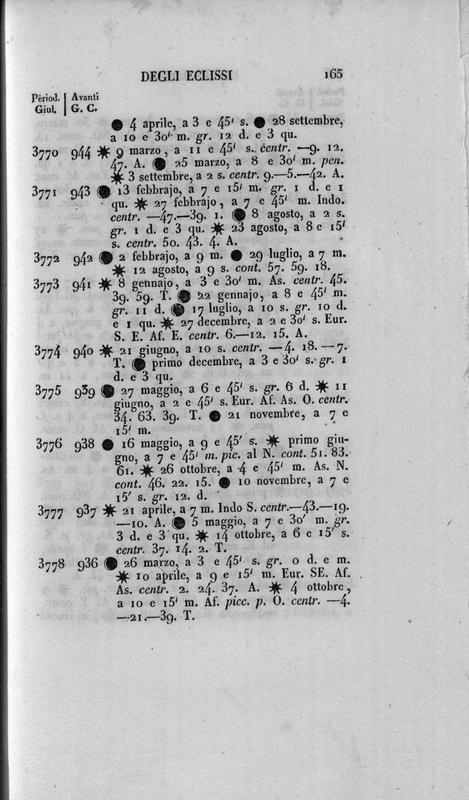 DEGLI ECLISSI 165
Pèriod. | Avanti
Giul. | G. C.
● 4 aprile, a 3 e 45' s. ● 28 settembre,
a 10 e 30' m. gr. 12 d. e 3 qu.
3770 944 ✷ 9 marzo, a 11 e 45' s. centr. —9. 12.
47. A. ● 25 marzo, a 8 e 30' m. pen.
✷ 3 settembre, a 2 s. centr. 9.—5.—42. A.
3771 943 ● 13 febbrajo, a 7 e 15' m. gr. 1 d. e 1
qu. ✷ 27 febbrajo, a 7 e 45' m. Indo.
centr. —47.—39. 1. ● 8 agosto, a 2 s.
gr. 1 d. e 3 qu. ✷ 23 agosto, a 8 e 15'
s. centr. 50. 43. 4. A.
3772 942 ● 2 febbrajo, a 9 m. ● 29 luglio, a 7 m.
✷ 12 agosto, a 9 s. cont. 57. 59. 18.
3773 941 ✷ 8 gennajo, a 3 e 30' m. As. centr. 45.
39. 59. T. ● 22 gennajo, a 8 e 45' m.
gr. 11 d. ● 17 luglio, a 10 s. gr. 10 d.
e 1 qu. ✷ 27 decembre, a 2 e 30' s. Eur.
S. E. Af. E. centr. 6.—12. 15. A.
3774 940 ✷ 21 giugno, a 10 s. centr. —4. 18.—7.
T. ● primo decembre, a 3 e 30' s. gr. 1
d. e 3 qu.
3775 939 ● 27 maggio, a 6 e 45' s. gr. 6 d. ✷ 11
giugno, a 2 e 45' s. Eur. Af. As. O. centr.
34. 63. 39. T. ● 21 novembre, a 7 e
15' m.
3776 938 ● 16 maggio, a 9 e 45' s. ✷ primo giu-
gno, a 7 e 45' m. pic. al N. cont. 51. 83.
61. ✷ 26 ottobre, a 4 e 45' m. As. N.
cont. 46. 22. 15. ● 10 novembre, a 7 e
15' s. gr. 12. d.
3777 937 ✷ 21 aprile, a 7 m. Indo S. centr.—43.—19.
—10. A. ● 5 maggio, a 7 e 30' m. gr.
3 d. e 3 qu. ✷ 14 ottobre, a 6 e 15' s.
centr. 37. 14. 2. T.
3778 936 ● 26 marzo, a 3 e 45' s. gr. 0 d. e m.
✷ 10 aprile, a 9 e 15' m. Eur. SE. Af.
As. centr. 2. 24. 37. A. ✷ 4 ottobre,
a 10 e 15' m. Af. picc. p. O. centr. —4.
—21.—39. T.